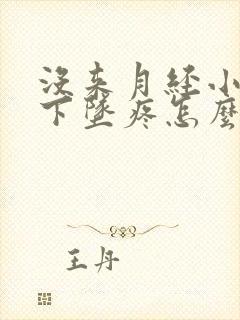 没来月经小
下坠疼怎麼
王丹